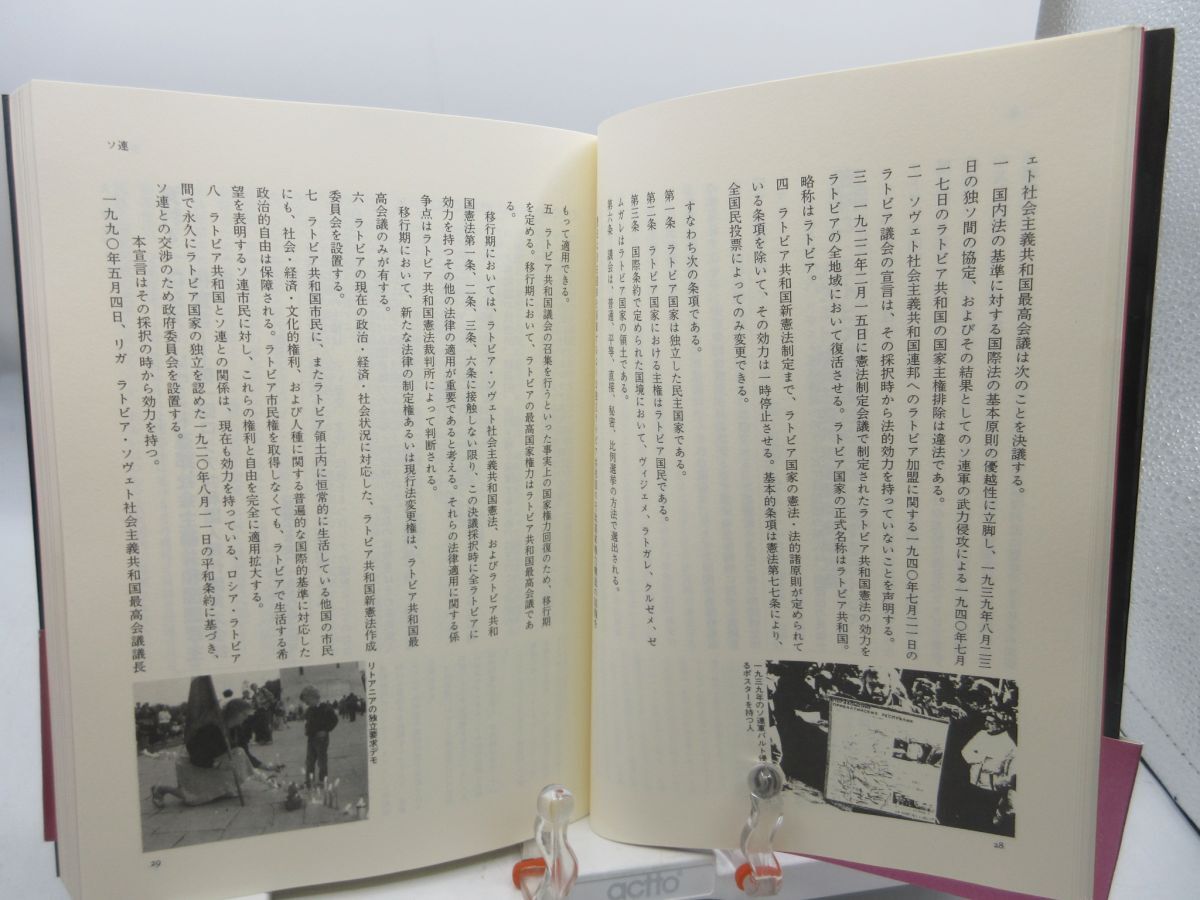 ェト社会主義共和国最高会議は次のことを決議する。
一　国内法の基準に対する国際法の基本原則の優越性に立脚し、一九三九年八月二三
日の独ソ間の協定、およびその結果としてのソ連軍の武力侵攻による一九四〇年七月
一七日のラトビア共和国の国家主権排除は違法である。
二　ソヴェト社会主義共和国連邦へのラトビア加盟に関する一九四〇年七月二一日の
ラトビア議会の宣言は、その採択時から法的効力を持っていないことを声明する。
三　一九二二年二月一五日に憲法制定会議で制定されたラトビア共和国憲法の効力を
ラトビアの全地域において復活させる。ラトビア国家の正式名称はラトビア共和国。
略称はラトビア。
四　ラトビア共和国新憲法制定まで、ラトビア国家の憲法・法的諸原則が定められて
いる条項を除いて、その効力は一時停止させる。基本的条項は憲法第七七条により、
全国民投票によってのみ変更できる。
すなわち次の条項である。
第一条　ラトビア国家は独立した民主国家である。
第二条　ラトビア国家における主権はラトビア国民である。
第三条　国際条約で定められた国境において、ヴィジェメ、ラトガレ、クルゼメ、ゼ
ムガレはラトビア国家の領土である。
第六条　議会は、普通、平等、直接、秘密、比例選挙の方法で選出される。
一九三九年のソ連軍バルト侵
るポスターを持つ人
28
ソ連
もって適用できる。
五　ラトビア共和国議会の召集を行うといった事実上の国家権力回復のため、移行期
を定める。移行期において、ラトビアの最高国家権力はラトビア共和国最高会議であ
る。
移行期においては、ラトビア・ソヴェト社会主義共和国憲法、およびラトビア共和
国憲法第一条、二条、三条、六条に接触しない限り、この決議採択時に全ラトビアに
効力を持つその他の法律の適用が重要であると考える。それらの法律適用に関する係
争点はラトビア共和国憲法裁判所によって判断される。
移行期において、新たな法律の制定権あるいは現行法変更権は、ラトビア共和国最
高会議のみが有する。
六　ラトビアの現在の政治・経済・社会状況に対応した、ラトビア共和国新憲法作成
委員会を設置する。
七　ラトビア共和国市民に、またラトビア領土内に恒常的に生活している他国の市民
にも、社会・経済・文化的権利、および人種に関する普遍的な国際的基準に対応した
政治的自由は保障される。ラトビア市民権を取得しなくても、ラトビアで生活する希
望を表明するソ連市民に対し、これらの権利と自由を完全に適用拡大する。
八　ラトビア共和国とソ連との関係は、現在も効力を持っている、ロシア・ラトビア
間で永久にラトビア国家の独立を認めた一九二〇年八月一一日の平和条約に基づき、
ソ連との交渉のため政府委員会を設置する。
本宣言はその採択の時から効力を持つ。
一九九〇年五月四日、リガ　ラトビア・ソヴェト社会主義共和国最高会議議長
リトアニアの独立要求デモ
29
actto